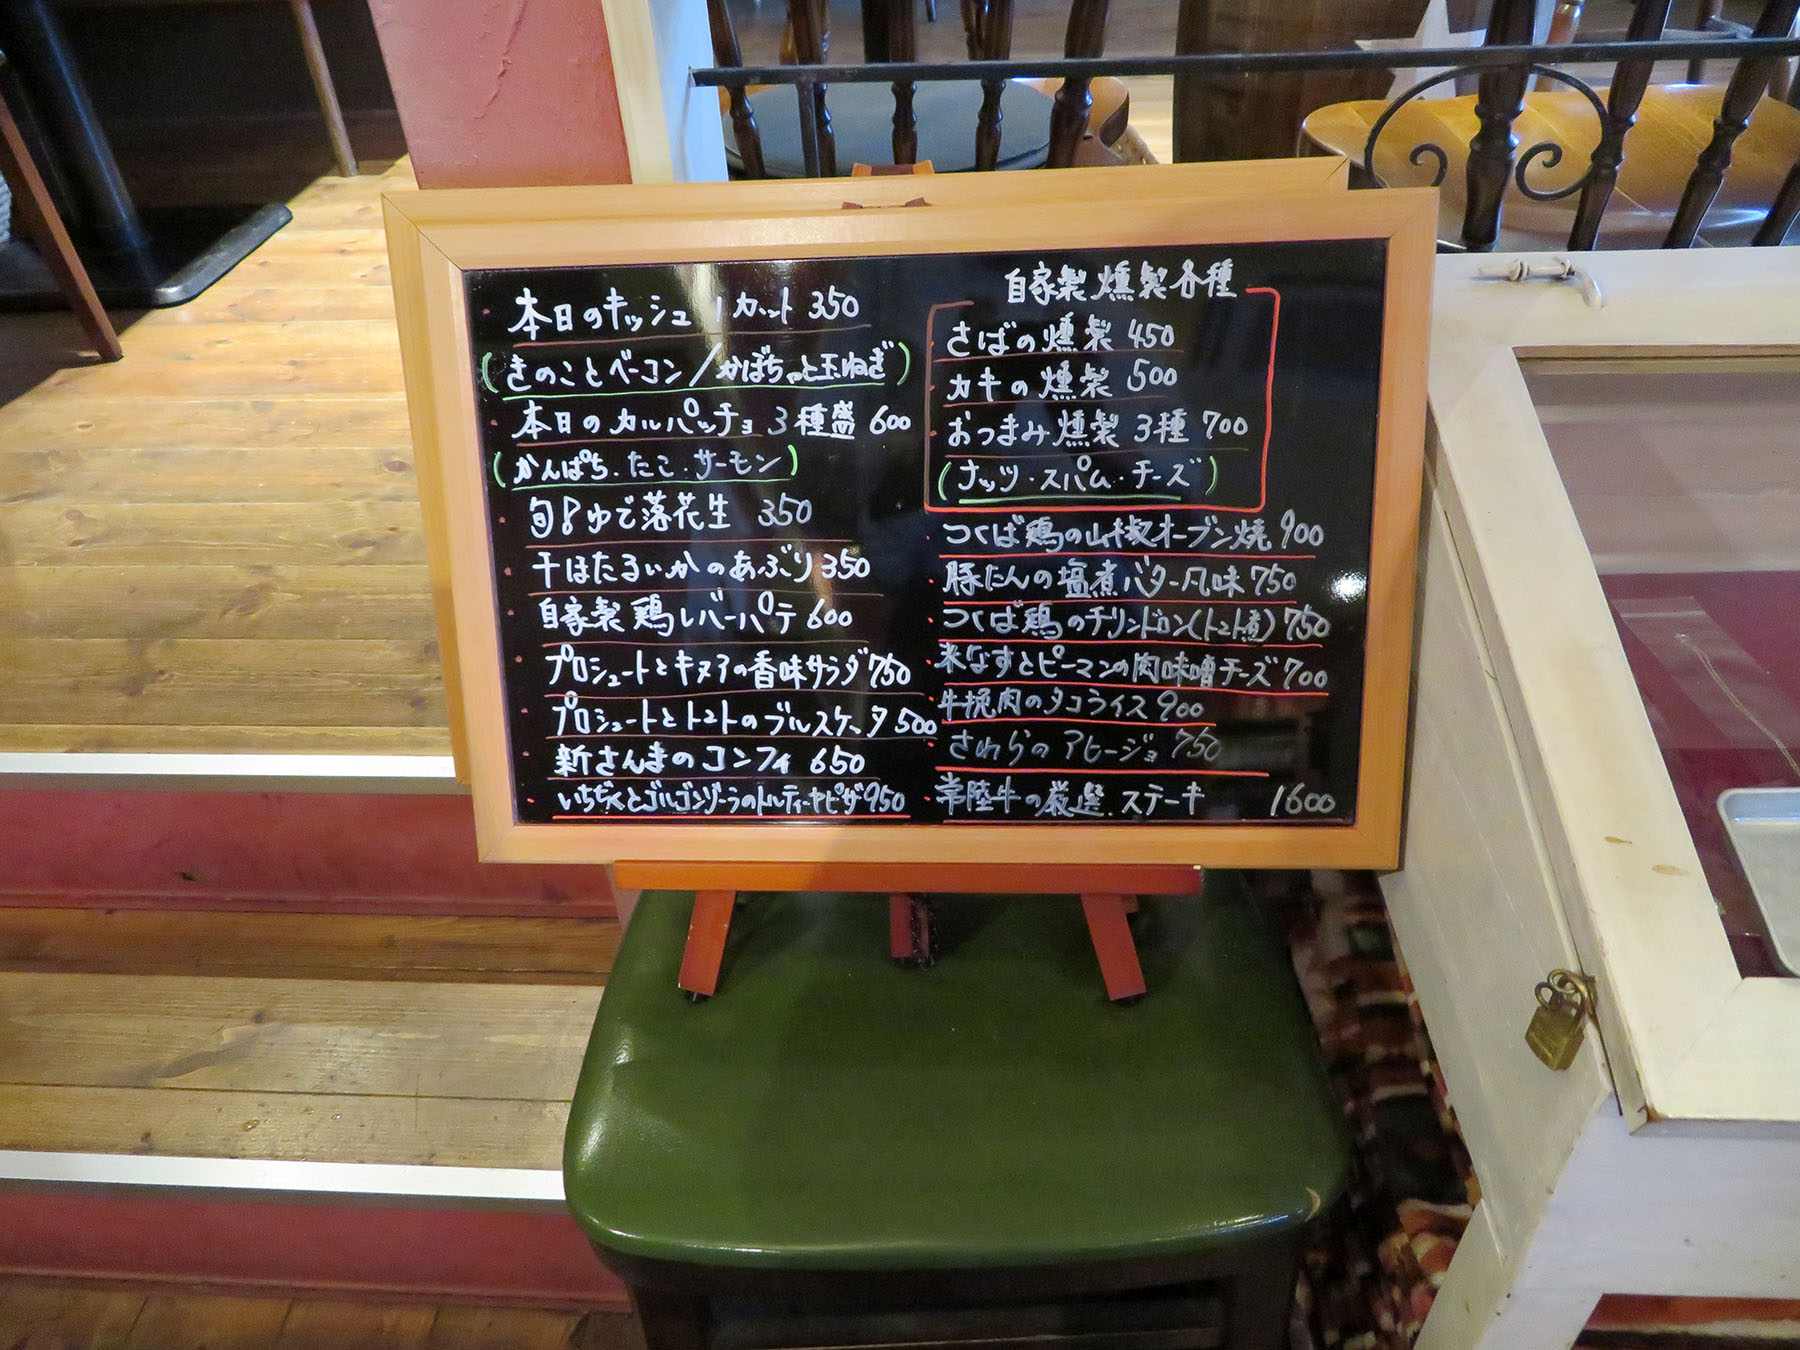 本日のキッシュ 1カット 350
(きのことベーコン/かぼちゃと玉ねぎ)
本日のカルパッチョ 3種盛 600
(かんぱち.たこ.サーモン)
旬8ゆで落花生 350
干ほたるいかのあぶり 350
自家製 鶏レバーパテ 600
プロシュートとキヌアの香味サラダ 750
プロシュートとトマトのブルスケッタ 500
新さんまのコンフィ 650
いちぢくとゴルゴンゾーラのトルティーヤピザ 950
自家製燻製各種
さばの燻製 450
カキの燻製 500
おつまみ燻製 3種 700
(ナッツ・スパム・チーズ)
つくば鶏の山椒オーブン焼 900
豚たんの塩煮バター風味 750
つくば鶏のチリンドロン(トマト煮) 750
米なすとピーマンの肉味噌チーズ 700
牛挽肉のタコライス 900
さわらのアヒージョ 750
常陸牛の厳選.ステーキ 1600